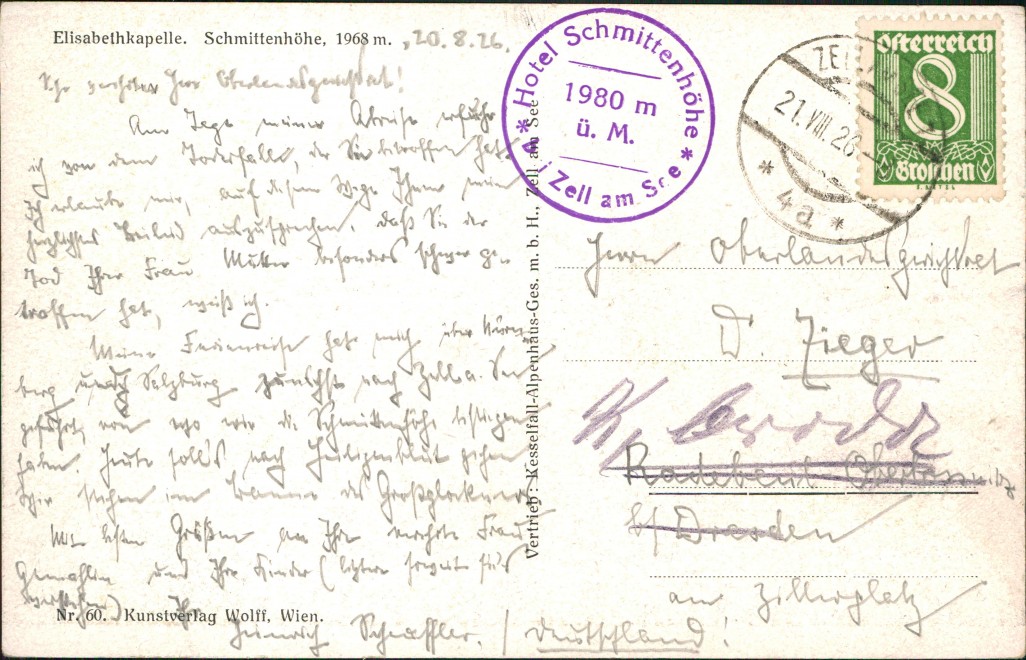 Elisabethkapelle. Schmittenhöhe, 1968 m.
20.8.26.
Sehr verehrter Herr Oberlandesgerichtsrat!
Am Tage meiner Abreise erfuhr
ich von dem Todesfall, der Sie betroffen hat.
Ich erlaube mir, auf diesem Wege Ihnen mein
herzlichstes Beileid auszusprechen. Daß Sie der
Tod Ihrer Frau Mutter besonders schwer ge-
troffen hat, weiß ich.
Meine Ferienreise hat mich über Nürn-
berg und Salzburg zunächst nach Zell a. See
geführt, von wo wir die Schmittenhöhe bestiegen
haben. Heute soll's nach Heiligenblut gehen
Wir stehen im Banne des Großglockners
Mit besten Grüßen an Ihre verehrte Frau
Gemahlin und Ihre Kinder (letztere soweit
Ihr
Heinrich Schaeffler.
Nr. 60. Kunstverlag Wolff, Wien.
Vertrieb: Kesselfall-Alpenhaus-Ges. m. b. H., Zell am See
* Hotel Schmittenhöhe *
1980 m
ü. M.
Zell am See
ZELL
21.VIII.26
* 4a *
Österreich
8
Groschen
Herrn Oberlandesgerichtsrat
D. Zieger
Radebeul Oberlössnitz
b/ Dresden
am Zillerplatz
Deutschland!